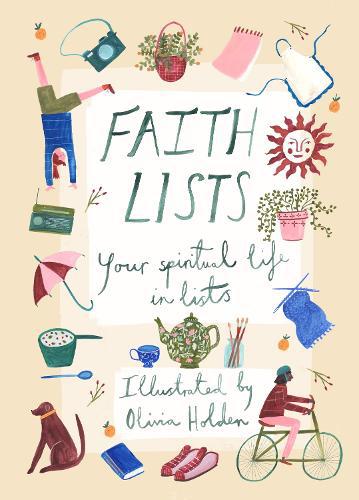 FAITH
LISTS
Your spiritual life
in lists
Illustrated by
Olivia Holden